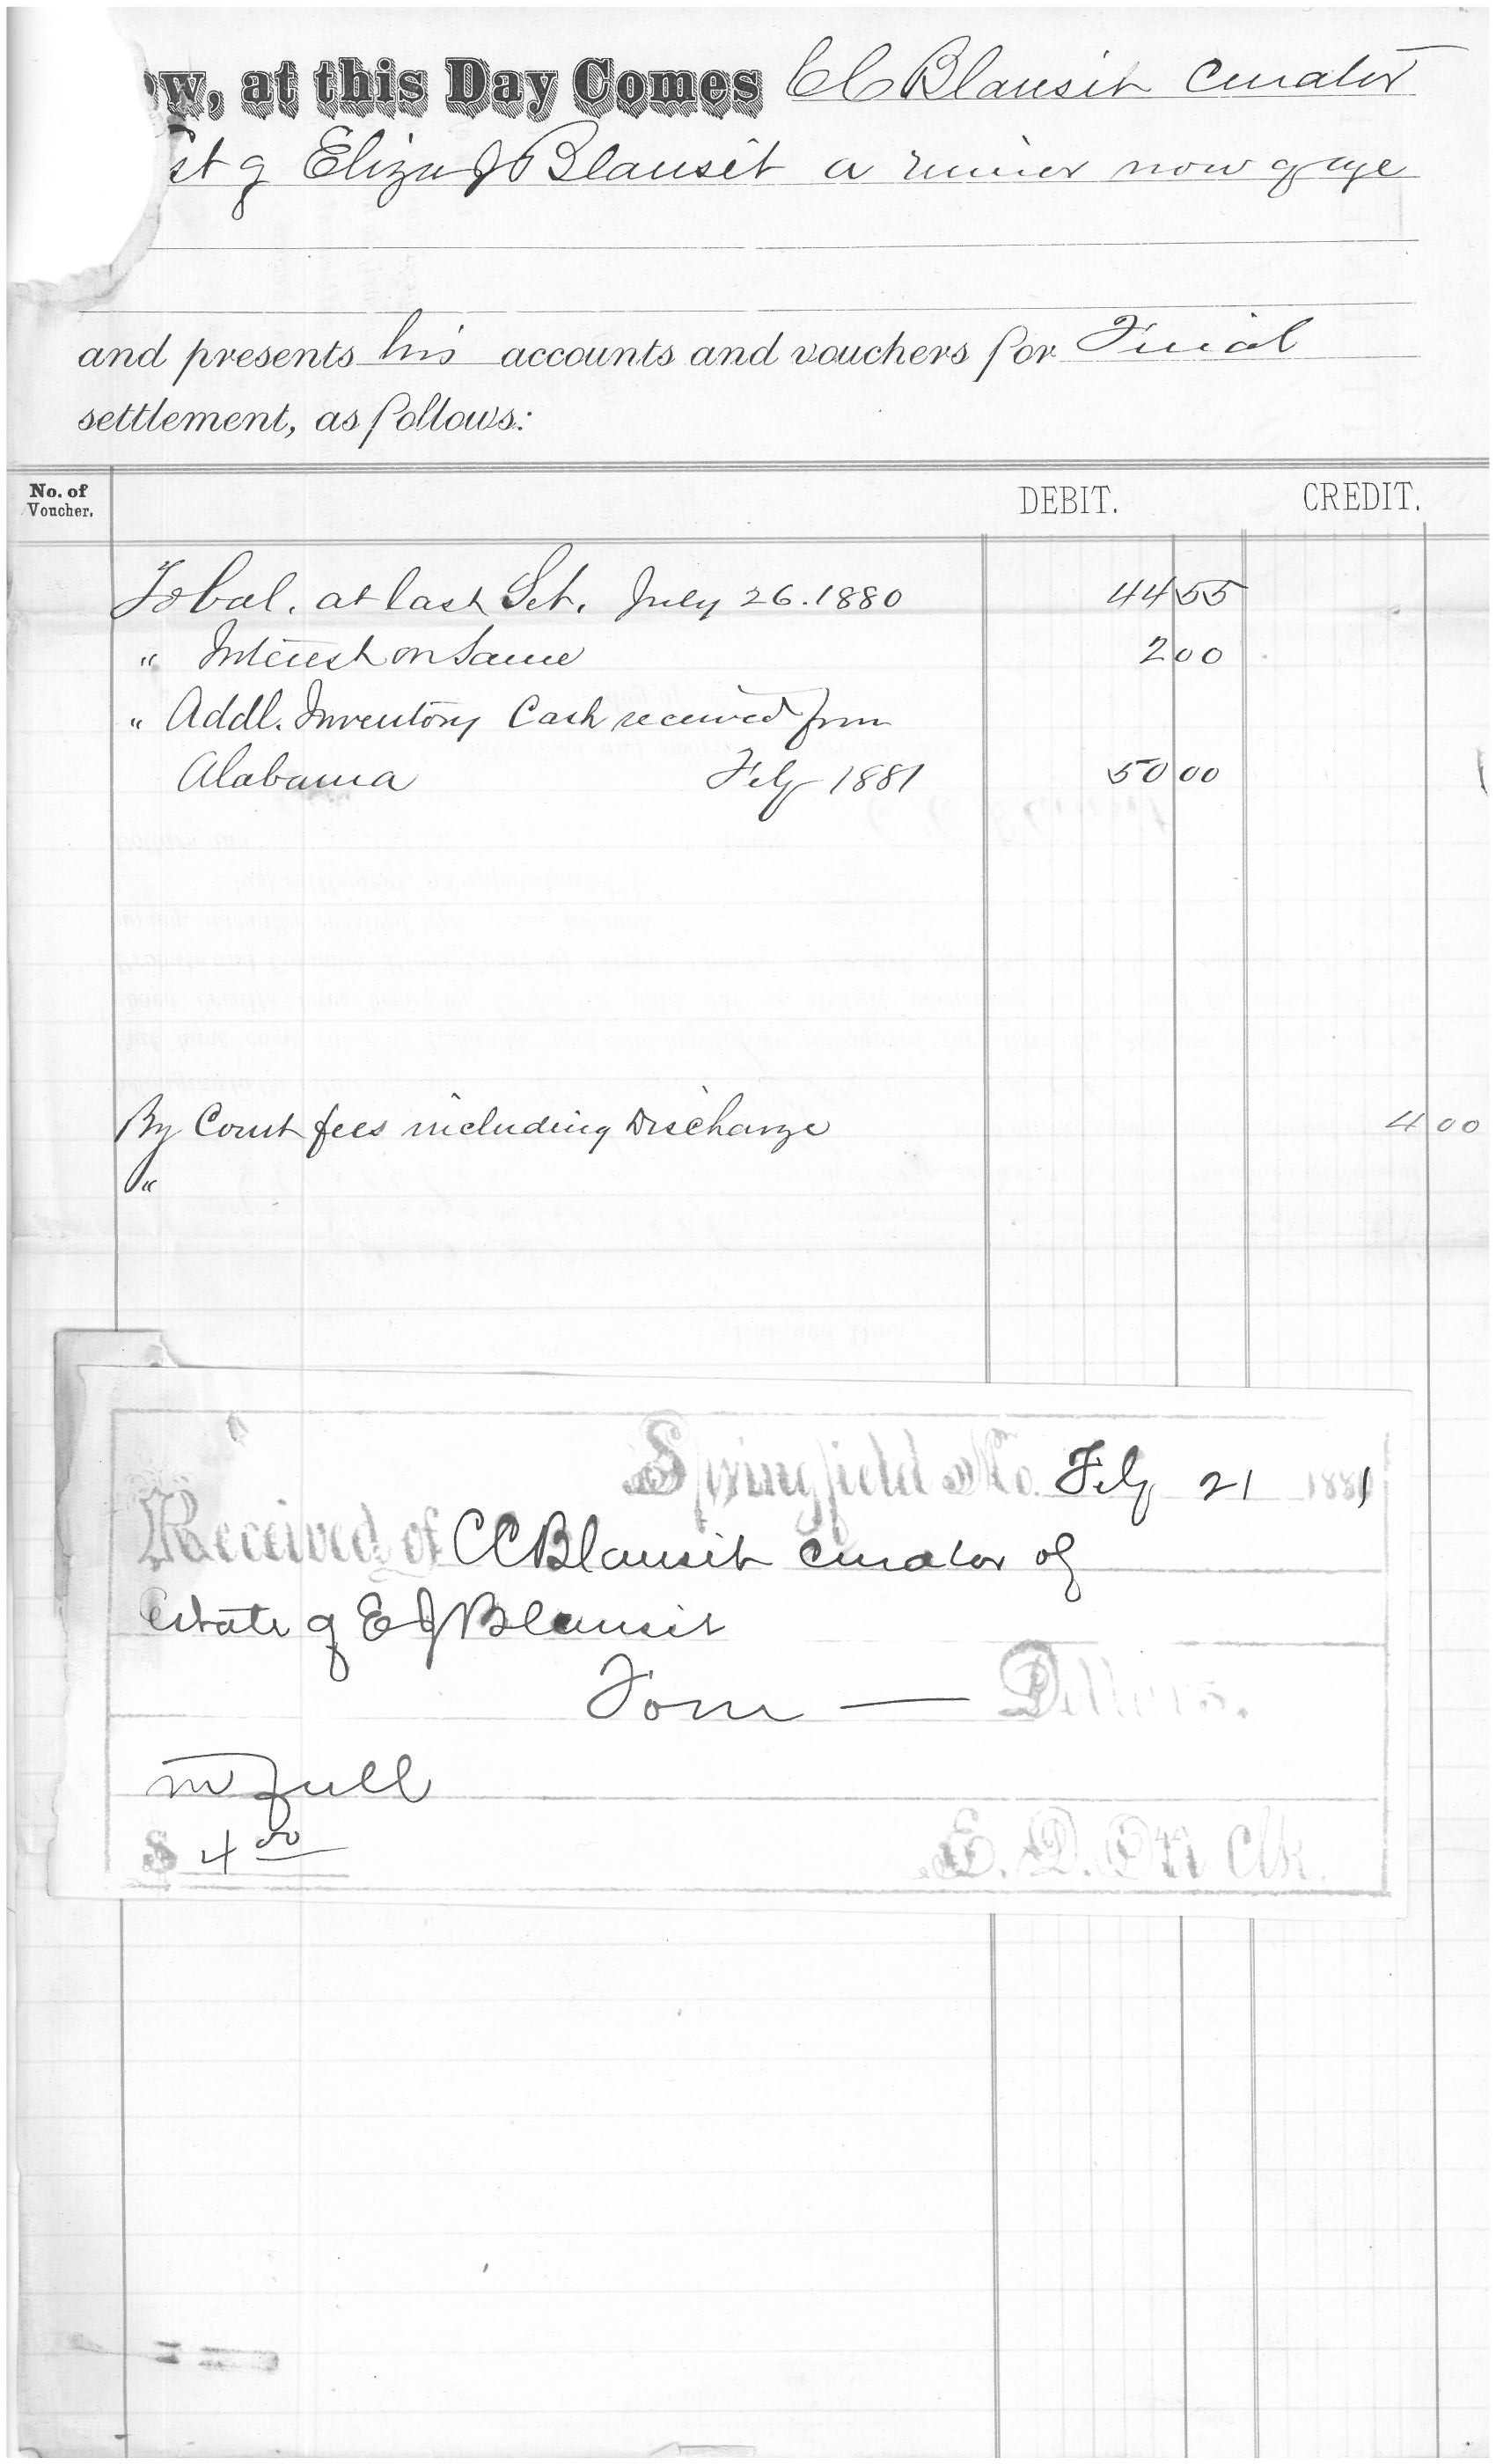 w, at this Day Comes C C Blansit Curator
st of Eliza J Blansit a minor now of age
and presents his accounts and vouchers for Final
settlement, as follows:
No. of Voucher. DEBIT. CREDIT.
To bal. at last Set. July 26. 1880 44 55
" Interest on Same 2 00
" Addl. Inventory Cash received from
Alabama Feby 1881 50 00
By Court fees including Discharge 4 00
"
Springfield Mo. Feby 21 1881
Received of C C Blansit curator of
Estate of E J Blansit
Four — Dollars.
in full
$ 4 00 E. D. Ott Clk.